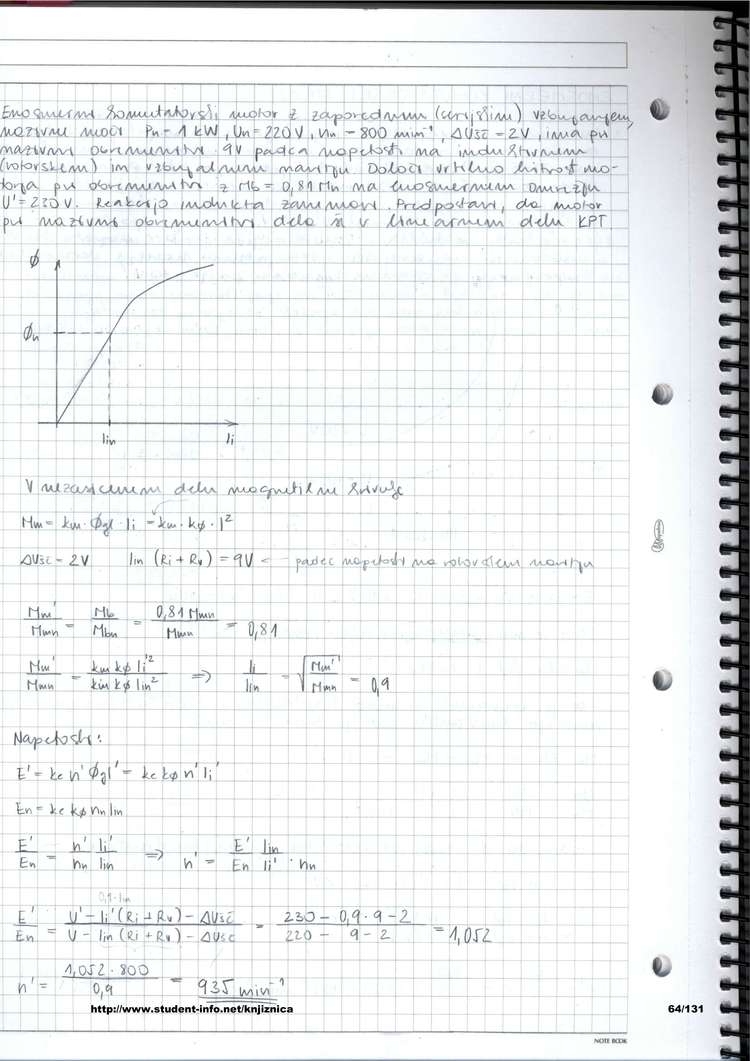 Enosmerni komutatorski motor z zaporednim (serijskim) vzbujanjem,
nazivne moči Pn = 1 kW, Un = 220 V, nn = 800 min⁻¹, ΔUšč = 2V, ima pri
nazivni obremenitvi 9V padca napetosti na induktivnem
(rotorskem) in vzbujalnem navitju. Določi vrtilno hitrost mo-
torja pri obremenitvi z Mb = 0,81 Mn na enosmernem omrežju
U' = 230 V. Reakcijo indukta zanemari. Predpostavi, da motor
pri nazivni obremenitvi dela še v linearnem delu KPT.
Φ
Φn
Iin
Ii
V nezasičenem delu magnetilne krivulje
Mm = km · Φgl · Ii = km · kΦ · I²
ΔUšč = 2V Iin (Ri + Rv) = 9V ← padec napetosti na rotorskem navitju
Mm'/Mmn = Mb/Mbn = 0,81 Mmn/Mmn = 0,81
Mm'/Mmn = km kΦ Ii'²/km kΦ Iin² ⇒ Ii/Iin = √(Mm'/Mmn) = 0,9
Napetosti:
E' = ke n' Φgl' = ke kΦ n' Ii'
En = ke kΦ nn Iin
E'/En = n' Ii'/nn Iin ⇒ n' = E'/En Iin/Ii' · nn
0,9·Iin
E'/En = U' - Ii' (Ri + Rv) - ΔUšč/U - Iin (Ri + Rv) - ΔUšč = 230 - 0,9 · 9 - 2/220 - 9 - 2 = 1,052
n' = 1,052 · 800/0,9 = 935 min⁻¹
http://www.student-info.net/knjiznica
64/131
NOTE BOOK